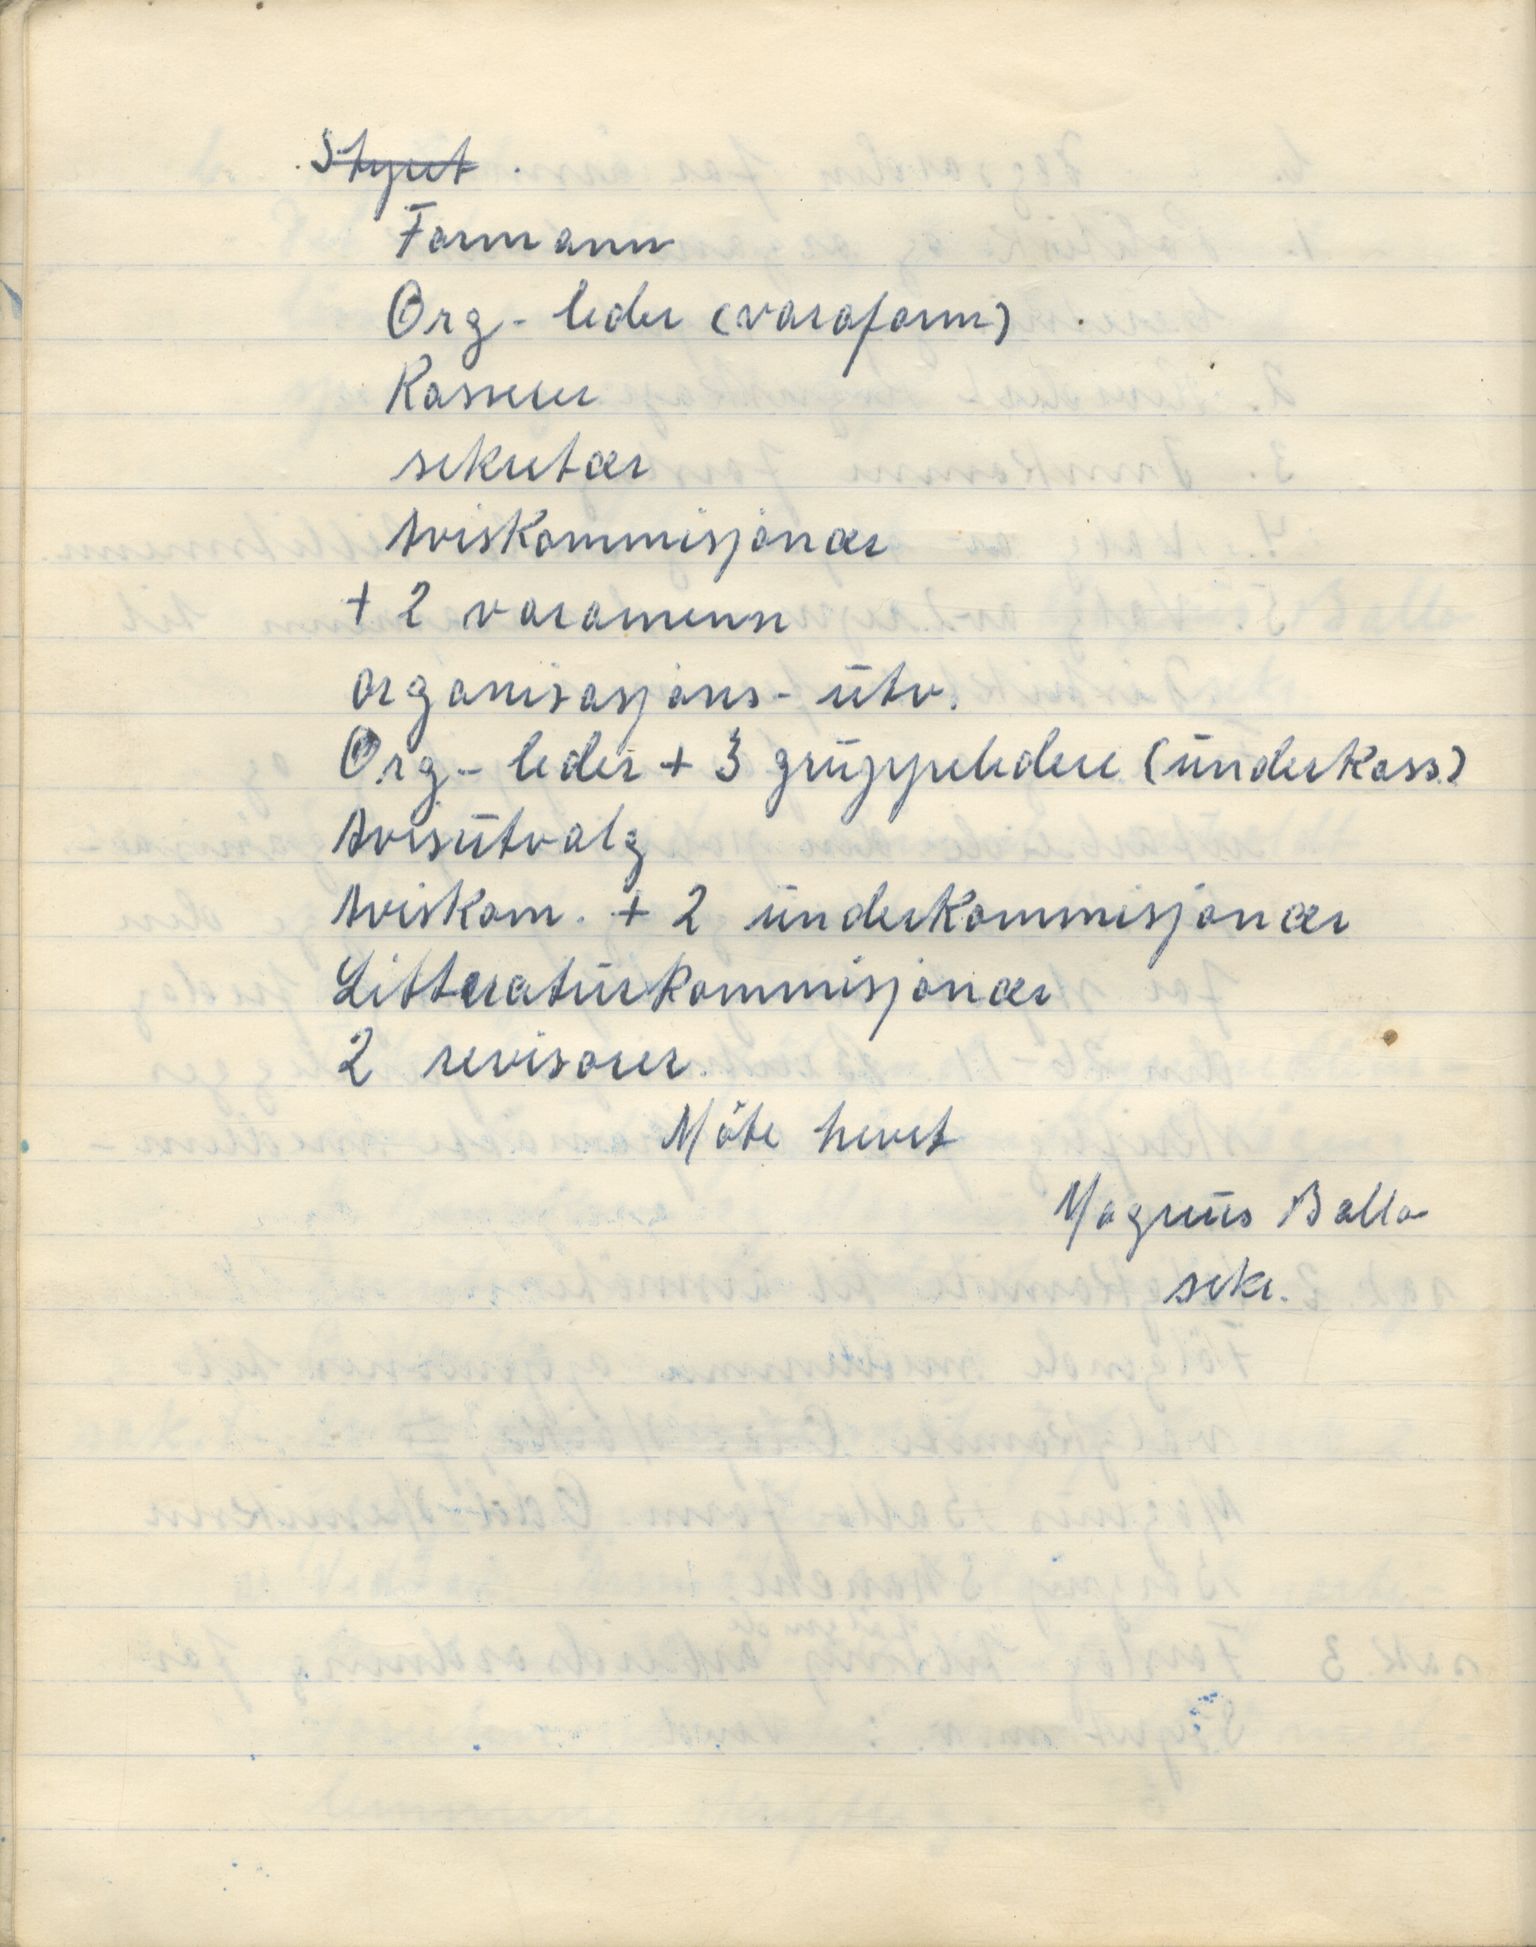 Styret
Formann
Org- leder (varaform)
Kasserer
sekretær
Aviskommisjonær
+ 2 varamenn
organisasjons- utv.
Org- leder + 3 gruppeledere (underkass)
Avisutvalg
Aviskom. + 2 underkommisjonær
Litteraturkommisjonær
2 revisorer
Möte hevet
Magnus Balla
sekr.